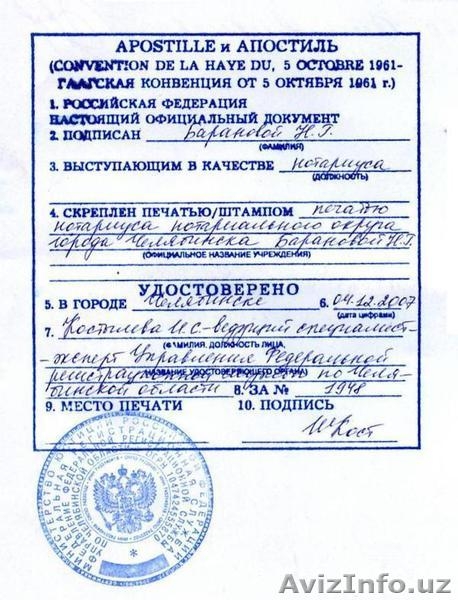 APOSTILLE и АПОСТИЛЬ
(CONVENTION DE LA HAYE DU, 5 OCTOBRE 1961-
ГААГСКАЯ КОНВЕНЦИЯ ОТ 5 ОКТЯБРЯ 1961 г.)
1. РОССИЙСКАЯ ФЕДЕРАЦИЯ
НАСТОЯЩИЙ ОФИЦИАЛЬНЫЙ ДОКУМЕНТ
2. ПОДПИСАН Барановой Н.Г.
(ФАМИЛИЯ)
3. ВЫСТУПАЮЩИМ В КАЧЕСТВЕ нотариуса
(ДОЛЖНОСТЬ)
4. СКРЕПЛЕН ПЕЧАТЬЮ/ШТАМПОМ печатью
нотариуса нотариального округа
города Челябинска Барановой Н.Г.
(ОФИЦИАЛЬНОЕ НАЗВАНИЕ УЧРЕЖДЕНИЯ)
УДОСТОВЕРЕНО
5. В ГОРОДЕ Челябинске 6. 04.12.2007
(дата цифрами)
7. Костылева И.С.-ведущий специалист-
(ФАМИЛИЯ, ДОЛЖНОСТЬ ЛИЦА,
-эксперт Управления Федеральной
регистрационной службы по Челя-
НАЗВАНИЕ УДОСТОВЕРЯЮЩЕГО ОРГАНА)
бинской области 8. ЗА № 1948
9. МЕСТО ПЕЧАТИ 10. ПОДПИСЬ
Кост
МИНИСТЕРСТВО ЮСТИЦИИ РОССИЙСКОЙ ФЕДЕРАЦИИ
AvizInfo.uz